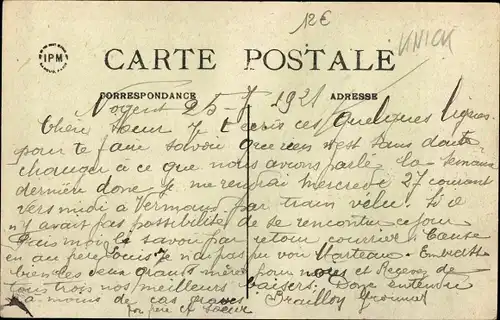 12€
UNICK
IPM
CARTE POSTALE
CORRESPONDANCE
ADRESSE
Nogent 25-7 1921
Chère Soeur Je t'écris ces quelques lignes
pour te faire savoir que rien n'est sans doute
changer à ce que nous avions parlé la semaine
dernière donc je me rendrai mercredi 27 courant
vers midi à par train Si il
n'y avait pas possibilité de se rencontrer ce jour
fais moi le savoir par retour courrier. Cause
en au père Louis je n'ai pas pu voir Marteau. Embrasse
bien les deux grands mères pour nous et Recevez de
tous trois nos meilleurs baisers. Donc entendu
à moins de cas graves
ton père et soeur